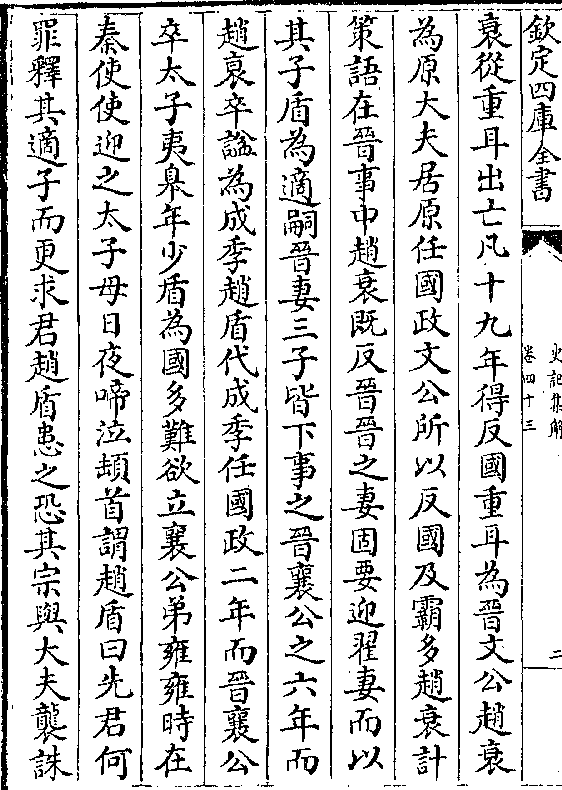 欽定四庫全書
史記集解
卷四十三
二
衰從重耳出亡凡十九年得反國重耳為晉文公趙衰
為原大夫居原任國政文公所以反國及霸多趙衰計
策語在晉事中趙衰既反晉晉之妻固要迎翟妻而以
其子盾為適嗣晉妻三子皆下事之晉襄公之六年而
趙衰卒諡為成季趙盾代成季任國政二年而晉襄公
卒太子夷臯年少盾為國多難欲立襄公弟雍雍時在
秦使使迎之太子母日夜啼泣頓首謂趙盾曰先君何
罪釋其適子而更求君趙盾患之恐其宗與大夫襲誅